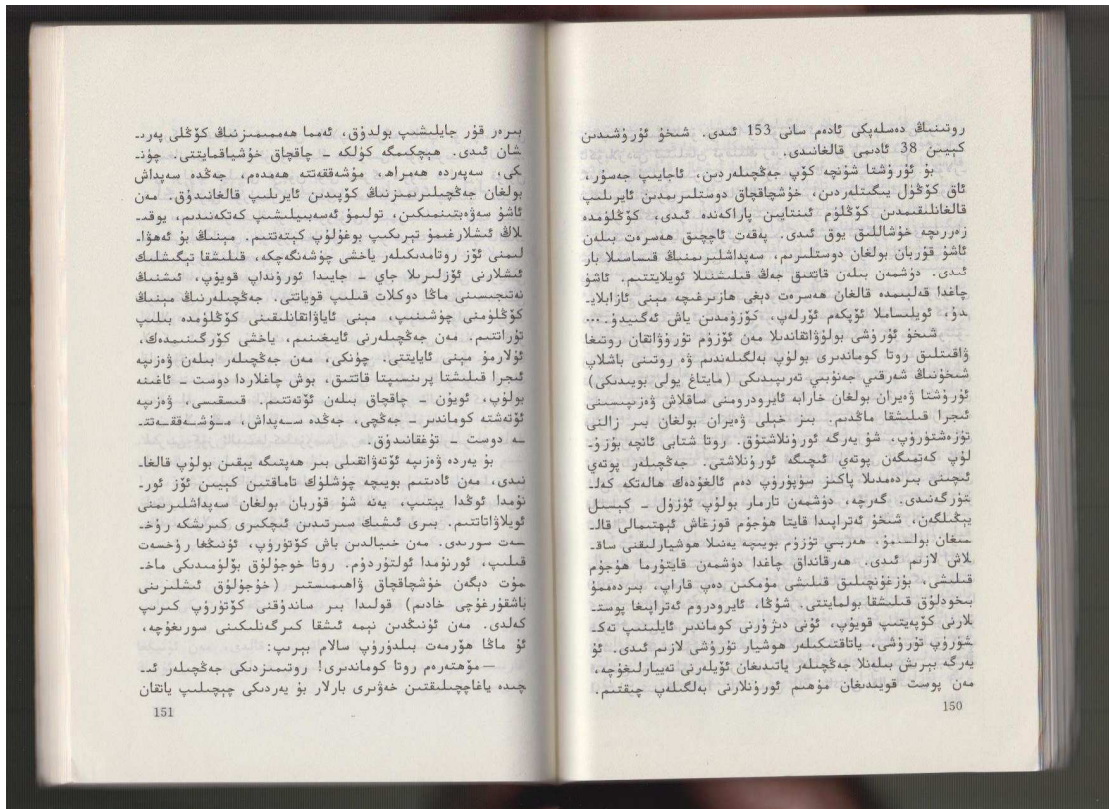 روتىنىڭ دەسلەپكى ئادەم سانى 153 ئىدى. شىخۇ ئۇرۇشىدىن
كېيىن 38 ئادىمى قالغانىدى.
بۇ ئۇرۇشتا شۇنچە كۆپ جەڭچىلەردىن، ئاجايىپ جەسۇر،
ئاق كۆڭۈل يىگىتلەردىن، خۇشچاقچاق دوستلىرىمدىن ئايرىلىپ
قالغانلىقىمدىن كۆڭلۈم ئىنتايىن پاراكەندە ئىدى، كۆڭلۈمدە
زەررىچە خۇشاللىق يوق ئىدى. پەقەت ئاچچىق ھەسرەت بىلەن
ئاشۇ قۇربان بولغان دوستلىرىم، سەپداشلىرىمنىڭ قىساسىلا بار
ئىدى. دۈشمەن بىلەن قاتتىق جەڭ قىلىشنىلا ئويلايتتىم. ئاشۇ
چاغدا قەلبىمدە قالغان ھەسرەت دېغى ھازىرغىچە مېنى ئازابلاي-
دۇ، ئويلىساملا ئۆپكەم ئۆرلەپ، كۆزۈمدىن ياش ئەگىيدۇ....
شىخۇ ئۇرۇشى بولۇۋاتقاندىلا مەن ئۆزۈم تۇرۇۋاتقان روتىغا
ۋاقىتلىق روتا كوماندىرى بولۇپ بەلگىلەندىم ۋە روتىنى باشلاپ
شىخۇنىڭ شەرقىي جەنۇبىي تەرىپىدىكى (مايتاغ يولى بويىدىكى)
ئۇرۇشتا ۋەيران بولغان خارابە ئايرودرومنى ساقلاش ۋەزىپىسىنى
ئىجرا قىلىشقا ماڭدىم. بىز خېلى ۋەيران بولغان بىر زالنى
تۈزەشتۈرۈپ، شۇ يەرگە ئورۇنلاشتۇق. روتا شتابى ئانچە بۇزۇ-
لۇپ كەتمىگەن پوتەي ئىچىگە ئورۇنلاشتى. جەڭچىلەر پوتەي
ئىچىنى بىردەمدىلا پاكىز سۈپۈرۈپ دەم ئالغۇدەك ھالەتكە كەل-
تۈرگەنىدى. گەرچە، دۈشمەن تارمار بولۇپ ئۈزۈل - كېسىل
يېڭىلگەن، شىخۇ ئەتراپىدا قايتا ھۇجۇم قوزغاش ئېھتىمالى قال-
مىغان بولسىمۇ، ھەربىي تۈزۈم بويىچە يەنىلا ھوشيارلىقنى ساق-
لاش لازىم ئىدى. ھەرقانداق چاغدا دۈشمەن قايتۇرما ھۇجۇم
قىلىشى، بۇزغۇنچىلىق قىلىشى مۇمكىن دەپ قاراپ، بىردەممۇ
بىخودلۇق قىلىشقا بولمايتتى. شۇڭا، ئايرودروم ئەتراپىغا پوست-
لارنى كۆپەيتىپ قويۇپ، ئۇنى دىژۇرنى كوماندىر ئايلىنىپ تەك-
شۈرۈپ تۇرۇشى، ياتاقتىكىلەر ھوشيار تۇرۇشى لازىم ئىدى. ئۇ
يەرگە بېرىش بىلەنلا جەڭچىلەر ياتىدىغان ئۆيلەرنى تەييارلىغۇچە،
مەن پوست قويىدىغان مۇھىم ئورۇنلارنى بەلگىلەپ چىقتىم.
150
بىرەر قۇر جايلىشىپ بولدۇق، ئەمما ھەممىمىزنىڭ كۆڭلى پەرى-
شان ئىدى. ھېچكىمگە كۈلكە - چاقچاق خۇشياقمايتتى. چۈن-
كى، سەپەردە ھەمراھ، مۇشەققەتتە ھەمدەم، جەڭدە سەپداش
بولغان جەڭچىلىرىمىزنىڭ كۆپىدىن ئايرىلىپ قالغانىدۇق. مەن
ئاشۇ سەۋەبتىنمىكىن، تولىمۇ ئەسەبىيلىشىپ كەتكەنىدىم، يوقى-
لاڭ ئىشلارغىمۇ تېرىكىپ بوغۇلۇپ كېتەتتىم. مېنىڭ بۇ ئەھۋا-
لىمنى ئۆز روتامدىكىلەر ياخشى چۈشەنگەچكە، قىلىشقا تېگىشلىك
ئىشلارنى ئۆزلىرىلا جاي - جايىدا ئورۇنداپ قويۇپ، ئىشنىڭ
نەتىجىسىنى ماڭا دوكلات قىلىپ قوياتتى. جەڭچىلەرنىڭ مېنىڭ
كۆڭلۈمنى چۈشىنىپ، مېنى ئاياۋاتقانلىقىنى كۆڭلۈمدە بىلىپ
تۇراتتىم. مەن جەڭچىلەرنى ئايىغىنىم، ياخشى كۆرگىنىمدەك،
ئۇلارمۇ مېنى ئايايتتى. چۈنكى، مەن جەڭچىلەر بىلەن ۋەزىپە
ئىجرا قىلىشتا پرىنسىپتا قاتتىق، بوش چاغلاردا دوست - ئاغىنە
بولۇپ، ئويۇن - چاقچاق بىلەن ئۆتەتتىم. قىسقىسى، ۋەزىپە
ئۆتەشتە كوماندىر - جەڭچى، جەڭدە سەپداش، مۇشەققەتت-
ە دوست - تۇغقانىدۇق.
بۇ يەردە ۋەزىپە ئۆتەۋاتقىلى بىر ھەپتىگە يېقىن بولۇپ قالغا-
نىدى، مەن ئادىتىم بويىچە چۈشلۈك تاماقتىن كېيىن ئۆز ئور-
نۇمدا ئوڭدا يېتىپ، يەنە شۇ قۇربان بولغان سەپداشلىرىمنى
ئويلاۋاتاتتىم. بىرى ئىشىك سىرتىدىن ئىچكىرى كىرىشكە رۇخ-
سەت سورىدى. مەن خىيالدىن باش كۆتۈرۈپ، ئۇنىڭغا رۇخسەت
قىلىپ، ئورنۇمدا ئولتۇردۇم. روتا خوجۇلۇق بۆلۈمىدىكى ماخ-
مۇت دېگەن خۇشچاقچاق ۋاھىمىستىر (خۇجۇلۇق ئىشلىرىنى
باشقۇرغۇچى خادىم) قولىدا بىر ساندۇقنى كۆتۈرۈپ كىرىپ
كەلدى. مەن ئۇنىڭدىن نېمە ئىشقا كىرگەنلىكىنى سورىغۇچە،
ئۇ ماڭا ھۆرمەت بىلدۈرۈپ سالام بېرىپ:
—مۆھتەرەم روتا كوماندىرى! روتىمىزدىكى جەڭچىلەر ئى-
چىدە ياغاچچىلىقتىن خەۋىرى بارلار بۇ يەردىكى چېچىلىپ ياتقان
151